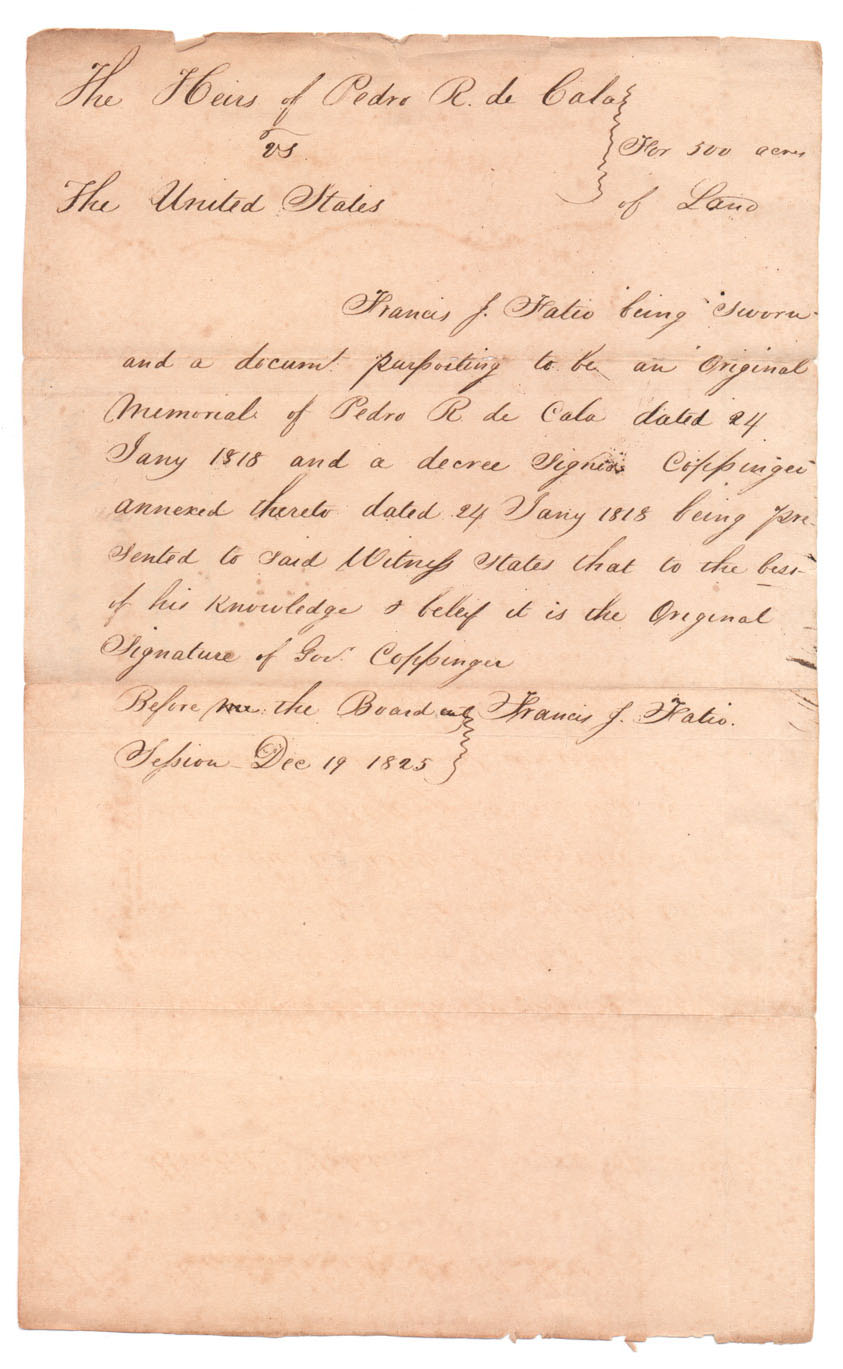 The Heirs of Pedro R. de Cala
vs
For 500 acres
The United States
of Land
Francis J. Fatio being sworn
and a documt. purporting to be an Original
Memorial of Pedro R de Cala dated 24
Jany 1818 and a decree Signed Coppinger
annexed thereto dated 24 Jany 1818 being pre-
sented to said Witness States that to the best
of his Knowledge & beleif it is the Original
Signature of Govr. Coppinger
Before me the Board in Francis J. Fatio.
Session Dec 19 1825